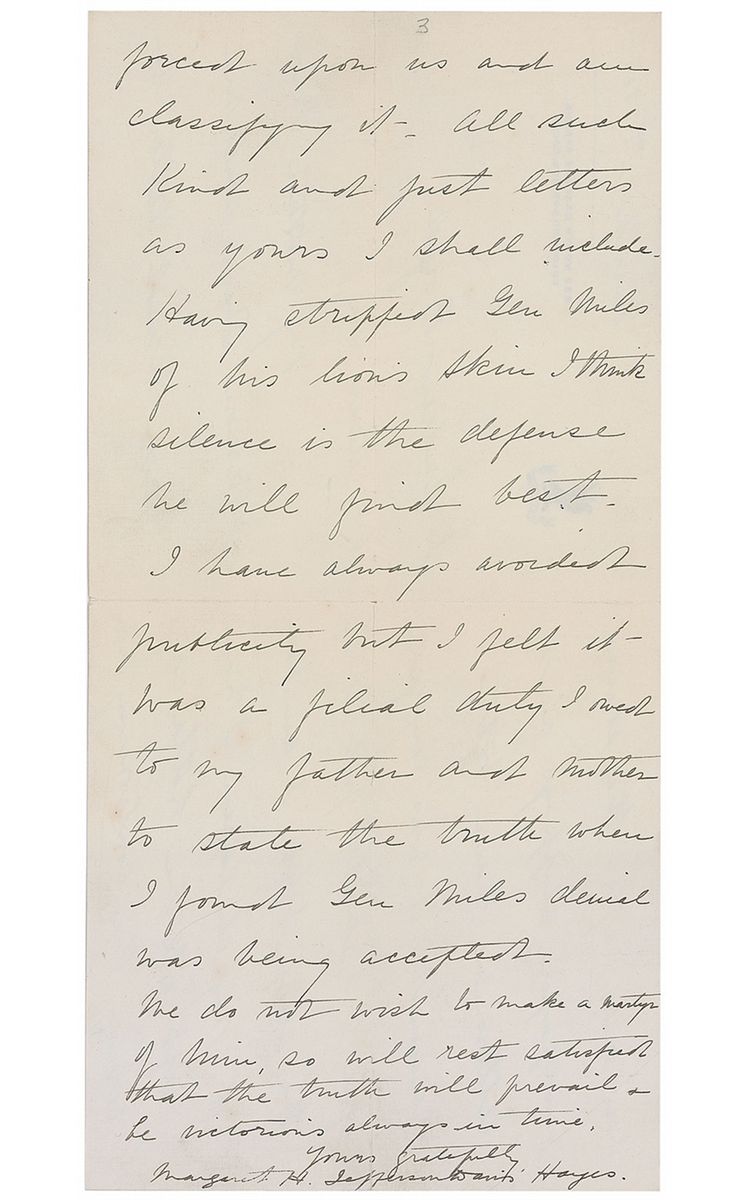 3
forced upon us and am
classifying it - All such
Kind and just letters
as yours I shall include.
Having stripped Gen Miles
of his lion's skin I think
silence is the defense
he will find best.
I have always avoided
publicity but I felt it
was a filial duty I owed
to my father and mother
to state the truth when
I found Gen Miles denial
was being accepted.
We do not wish to make a martyr
of him, so will rest satisfied
that the truth will prevail &
be victorious always in time.
Yours gratefully
Margaret H. Jefferson Davis Hayes.